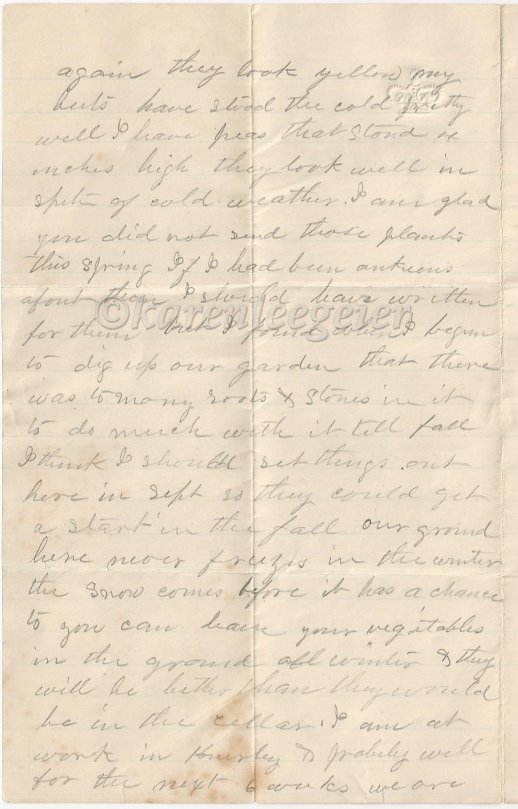 again they look yellow my
beets have stood the cold pretty
well I have peas that stand 4
inches high they look well in
spite of cold weather. I am glad
you did not send those plants
this spring If I had been antious
about them I should have written
©karenleegeier
for them but I found when I began
to dig up our garden that there
was to many roots & stones in it
to do much with it till fall
I think I should set things out
here in Sept so they could get
a start in the fall our ground
here never freezes in the winter
the snow comes before it has a chance
to you can leave your vegitables
in the ground all winter & they
will be better than they would
be in the cellar. I am at
work in Hurley & probely will
for the next 6 weeks we are